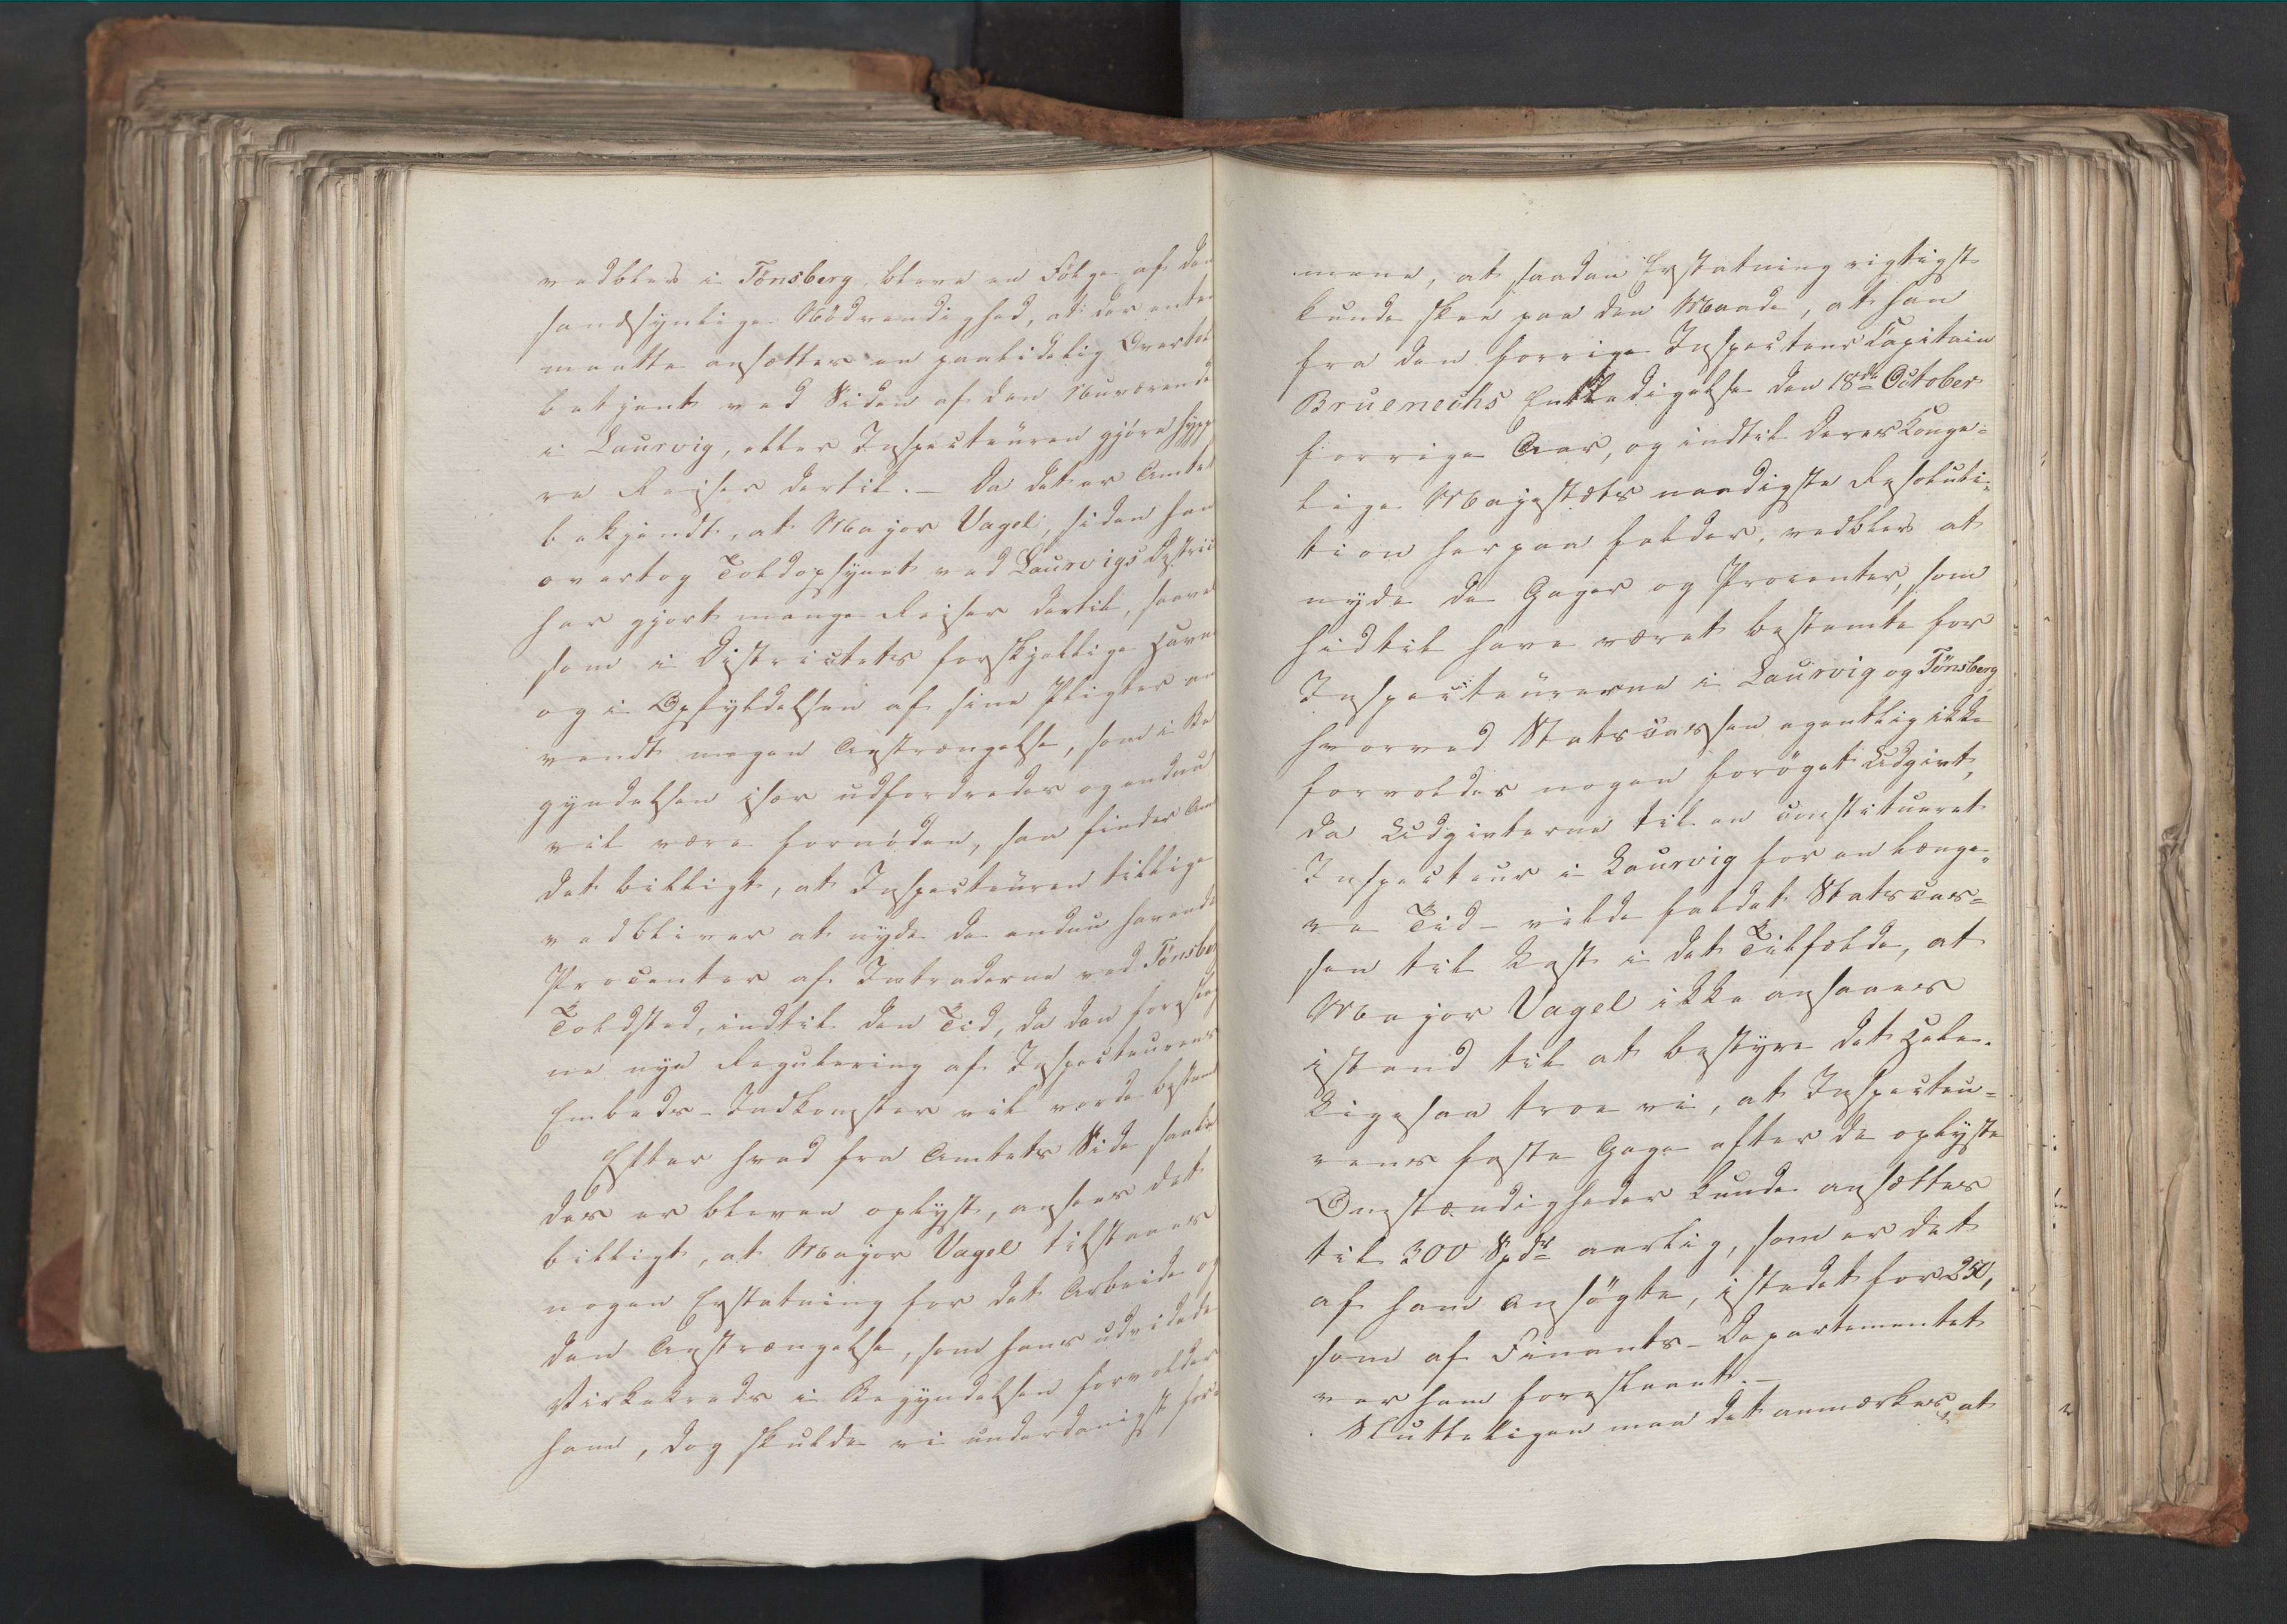 vedblev i Tönsberg, bleve en Fölge af den
sandsynlige Nödvendighed, at der enten
maatte ansættes en paalidelig Overtol
betjent ved Siden af den Nuværende
i Laurvig, eller Inspecteüren gjöre hyppi
re Reiser dertil. – Da det er Amtet
bekjendt, at Major Vagel, siden han
overtog Toldopsynet ved Laurvigs District
har gjort mange Reiser dertil, saavel
som i Districtets forskjellige Havne
og i Opfyldelsen af sine Pligter an
vendt megen Anstrængelse, som i Be
gyndelsen især udfordredes og endnu
vil være fornöden, saa finder Am
det billigt, at Inspecteüren tillige
vedbliver at nyde de endnu havende
Procenter af Intraderne ved Tönsber
Toldsted, indtil den Tid, da den foreslag
ne nye Regulering af Inspecteurens
Embeds-Indkomster vil vorde bestemt
Efter hvad fra Amtets Side saale
des er bleven oplyst, ansees det
billigt, at Major Vagel tilstaaes
nogen Erstatning for det Arbeide og
den Anstrængelse, som hans udvidede
Virkekreds i Begyndelsen forvolder
ham, dog skulde vi underdanigst for
mene, at saadan Erstatning rigtigst
kunde skee paa den Maade, at han
fra den forrige Inspecteur Capitain
Bruenechs Entledigelse den 18de October
forrige Aar, og indtil Deres Konge=
lige Majestæts naadigste Resoluti=
tion herpaa falder, vedblev at
nyde de Gager og Procenter, som
hidtil have været bestemte for
Inspecteürerne i Laurvig og Tönsberg
hvorved Statscassen egentlig ikke
forvoldes nogen foröget Udgivt,
da Udgivterne til en constitueret
Inspecteur i Laurvig for en længe=
re Tid – vilde faldet Statscas=
sen til Last i det Tilfælde, at
Major Vagel ikke ansaaes
istand til at bestyre det Hele.
Ligesaa troe vi, at Inspecteu=
rens faste Gage efter de oplyste
Omstændigheder kunde ansættes
til 300 Spdr aarlig, som er det
af ham Ansögte, istedet for 250,
som af Finants-Departementet
var ham foreslaaet. –
Slutteligen maa det anmærkes, at